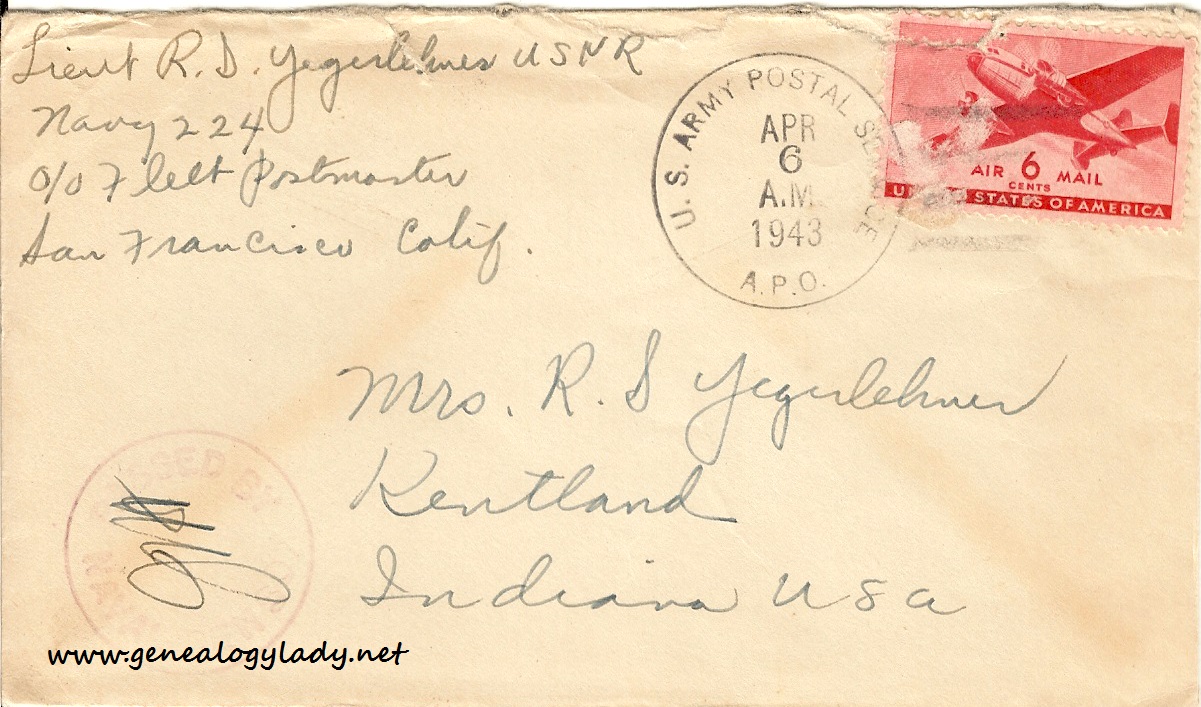 Lieut R. D. Yegerlehner USNR
Navy 224
c/o Fleet Postmaster
San Francisco Calif.
U.S. ARMY POSTAL SERVICE
APR
6
A.M.
1943
A.P.O.
AIR 6 MAIL
CENTS
UNITED STATES OF AMERICA
Mrs. R. D Yegerlehner
Kentland
Indiana USA
PASSED BY
NAVAL
www.genealogylady.net